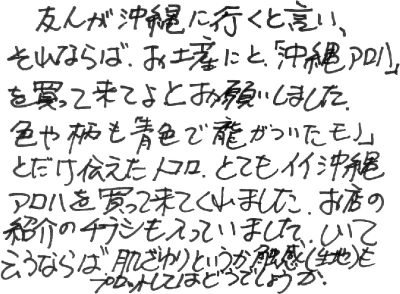 友人が沖縄に行くと言い、
それならば、お土産にと、「沖縄アロハ」
を買って来てよとお願いしました。
色や柄も「青色で龍がついたモノ」
とだけ伝えたトコロ、とてもイイ沖縄
アロハを買って来てくれました。お店の
紹介のチラシも入っていました。しいて
言うならば、肌ざわりというか触感(生地)も
プロットしてはどうでしょうか。